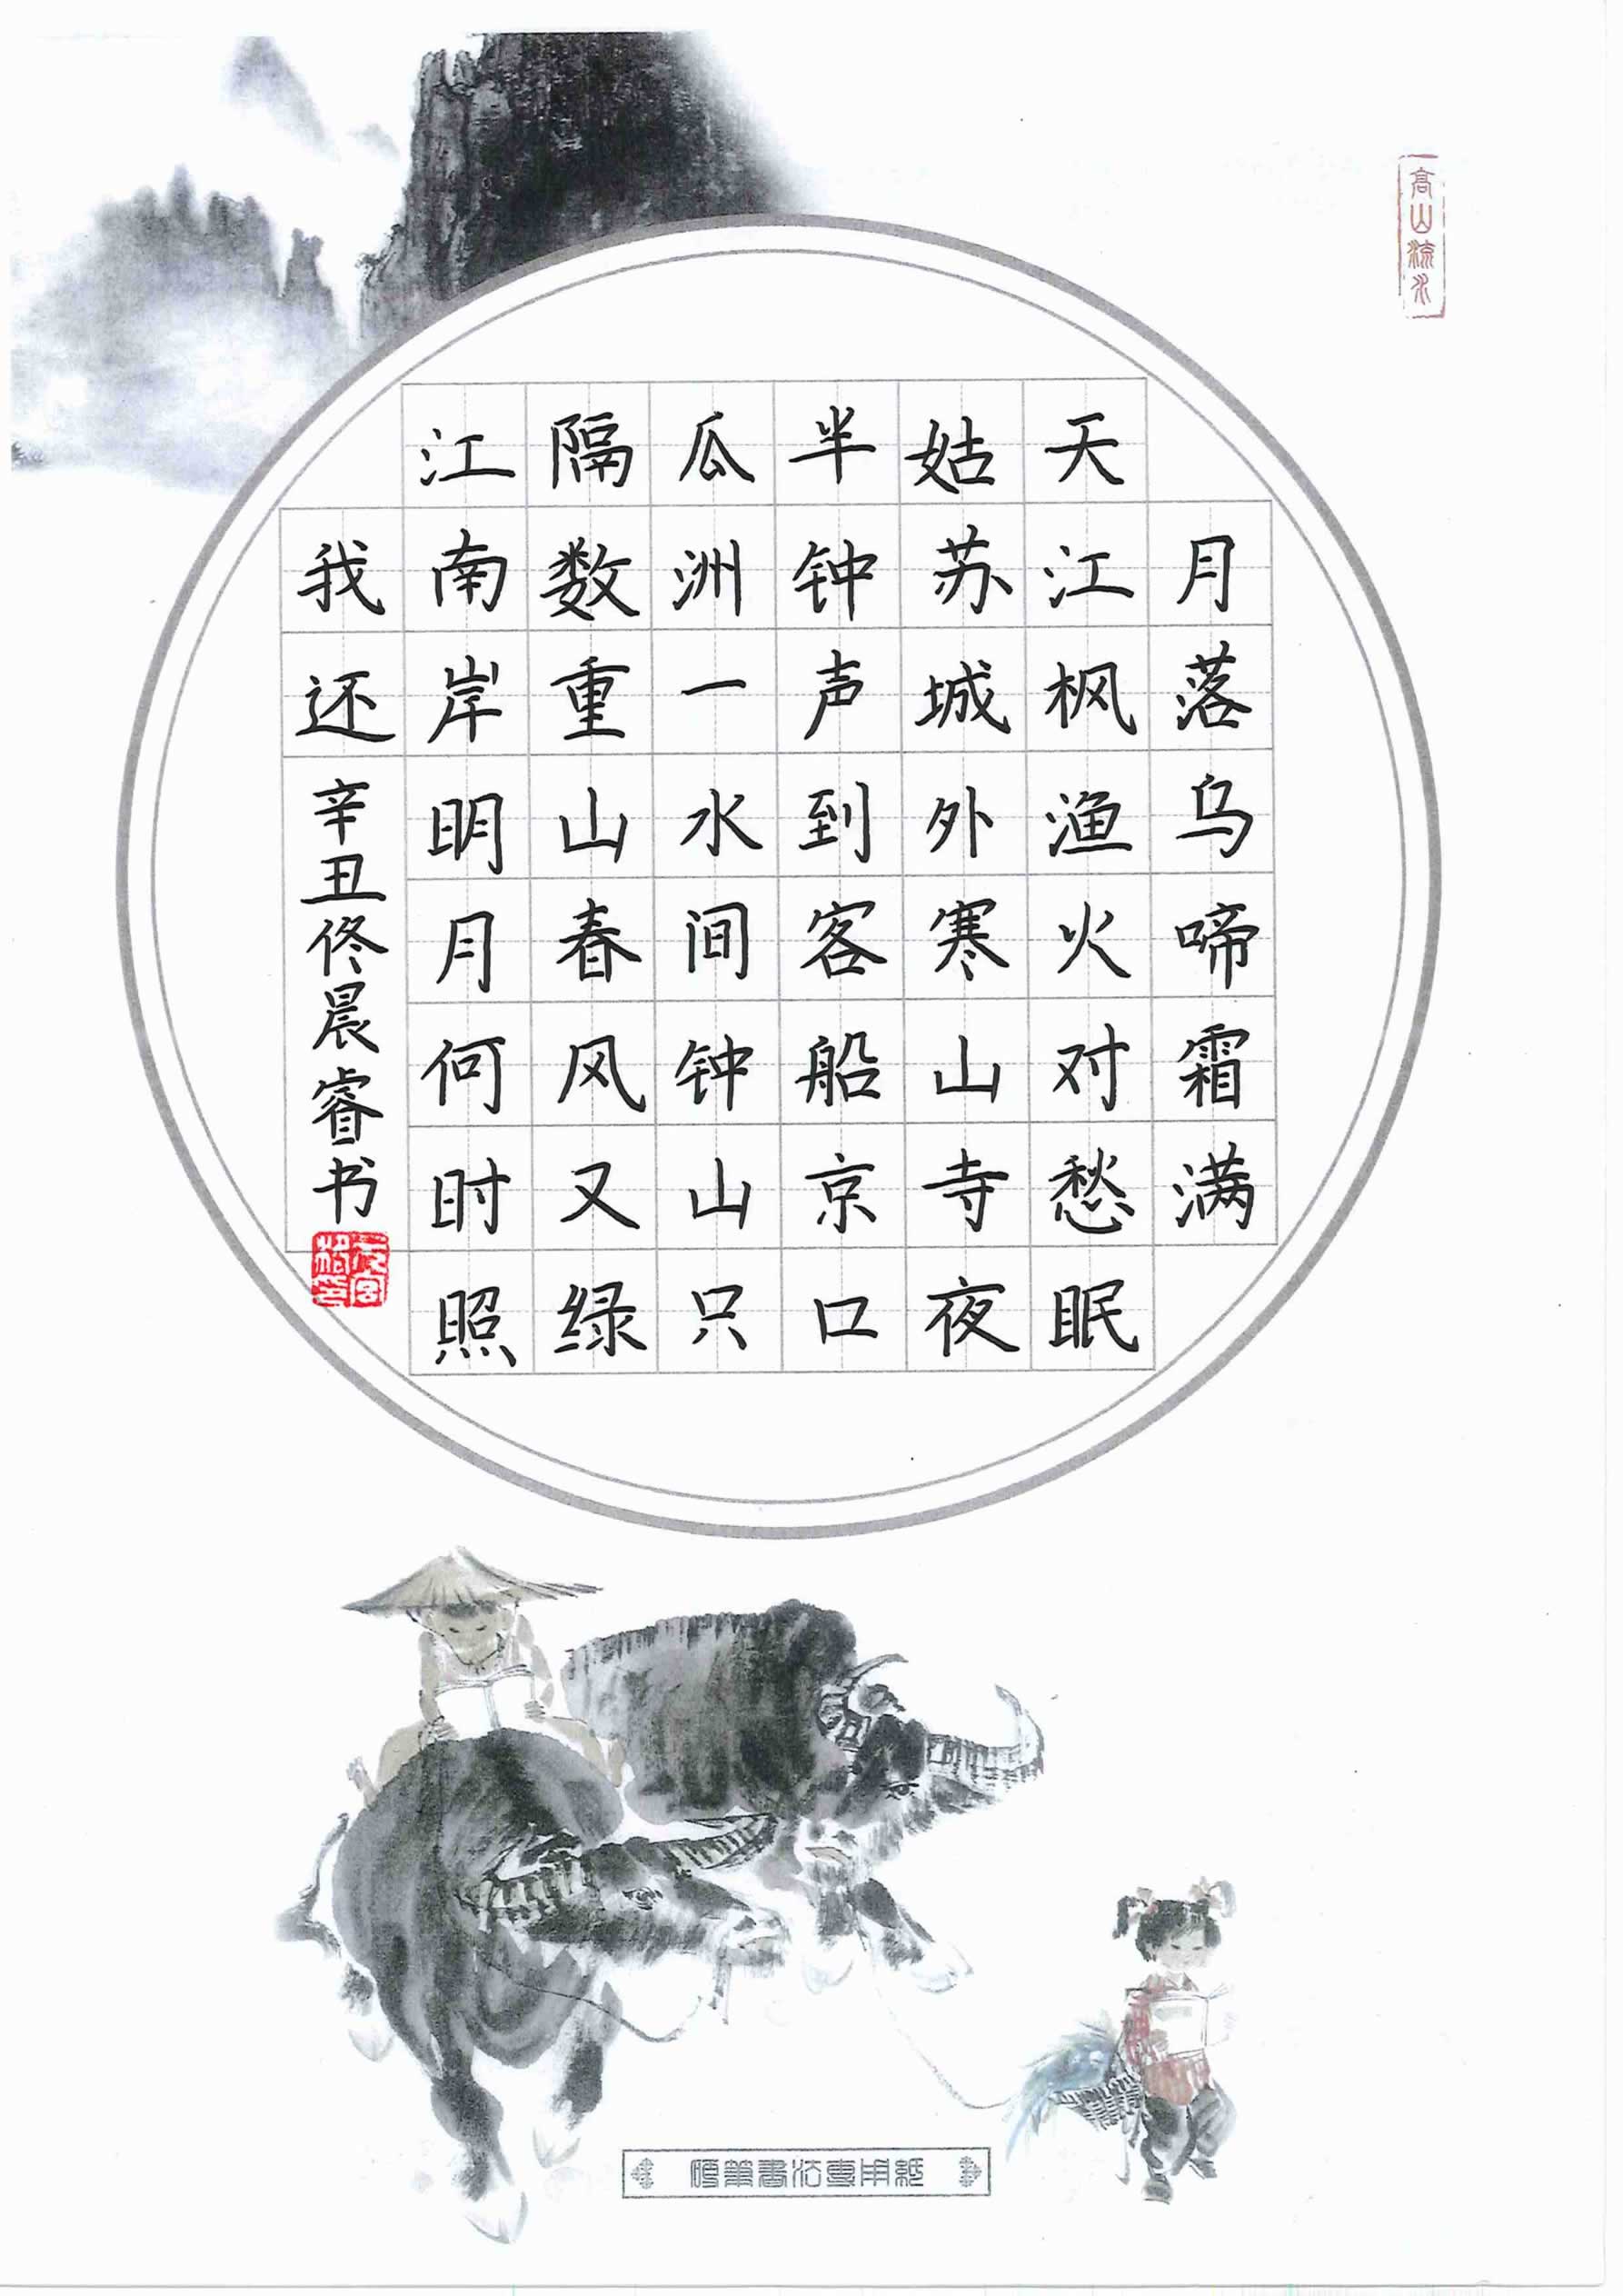 高山流水
月落乌啼霜满
天江枫渔火对愁眠
姑苏城外寒山寺夜
半钟声到客船京口
瓜洲一水间钟山只
隔数重山春风又绿
江南岸明月何时照
我还
辛丑佟晨睿书
硬筆書法專用紙